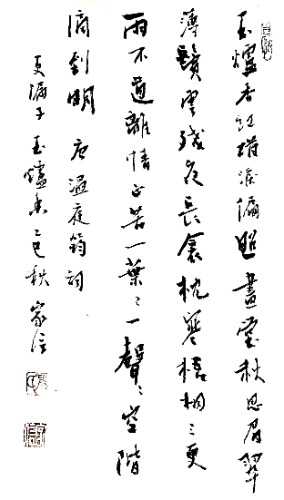 玉爐香红蜡淚偏照畫堂秋思眉翠
薄鬢雲殘夜長衾枕寒梧桐三更
雨不道離情正苦一葉〻一聲〻空階
滴到明 唐溫庭筠詞
更漏子 玉爐香 乙巳秋 家信